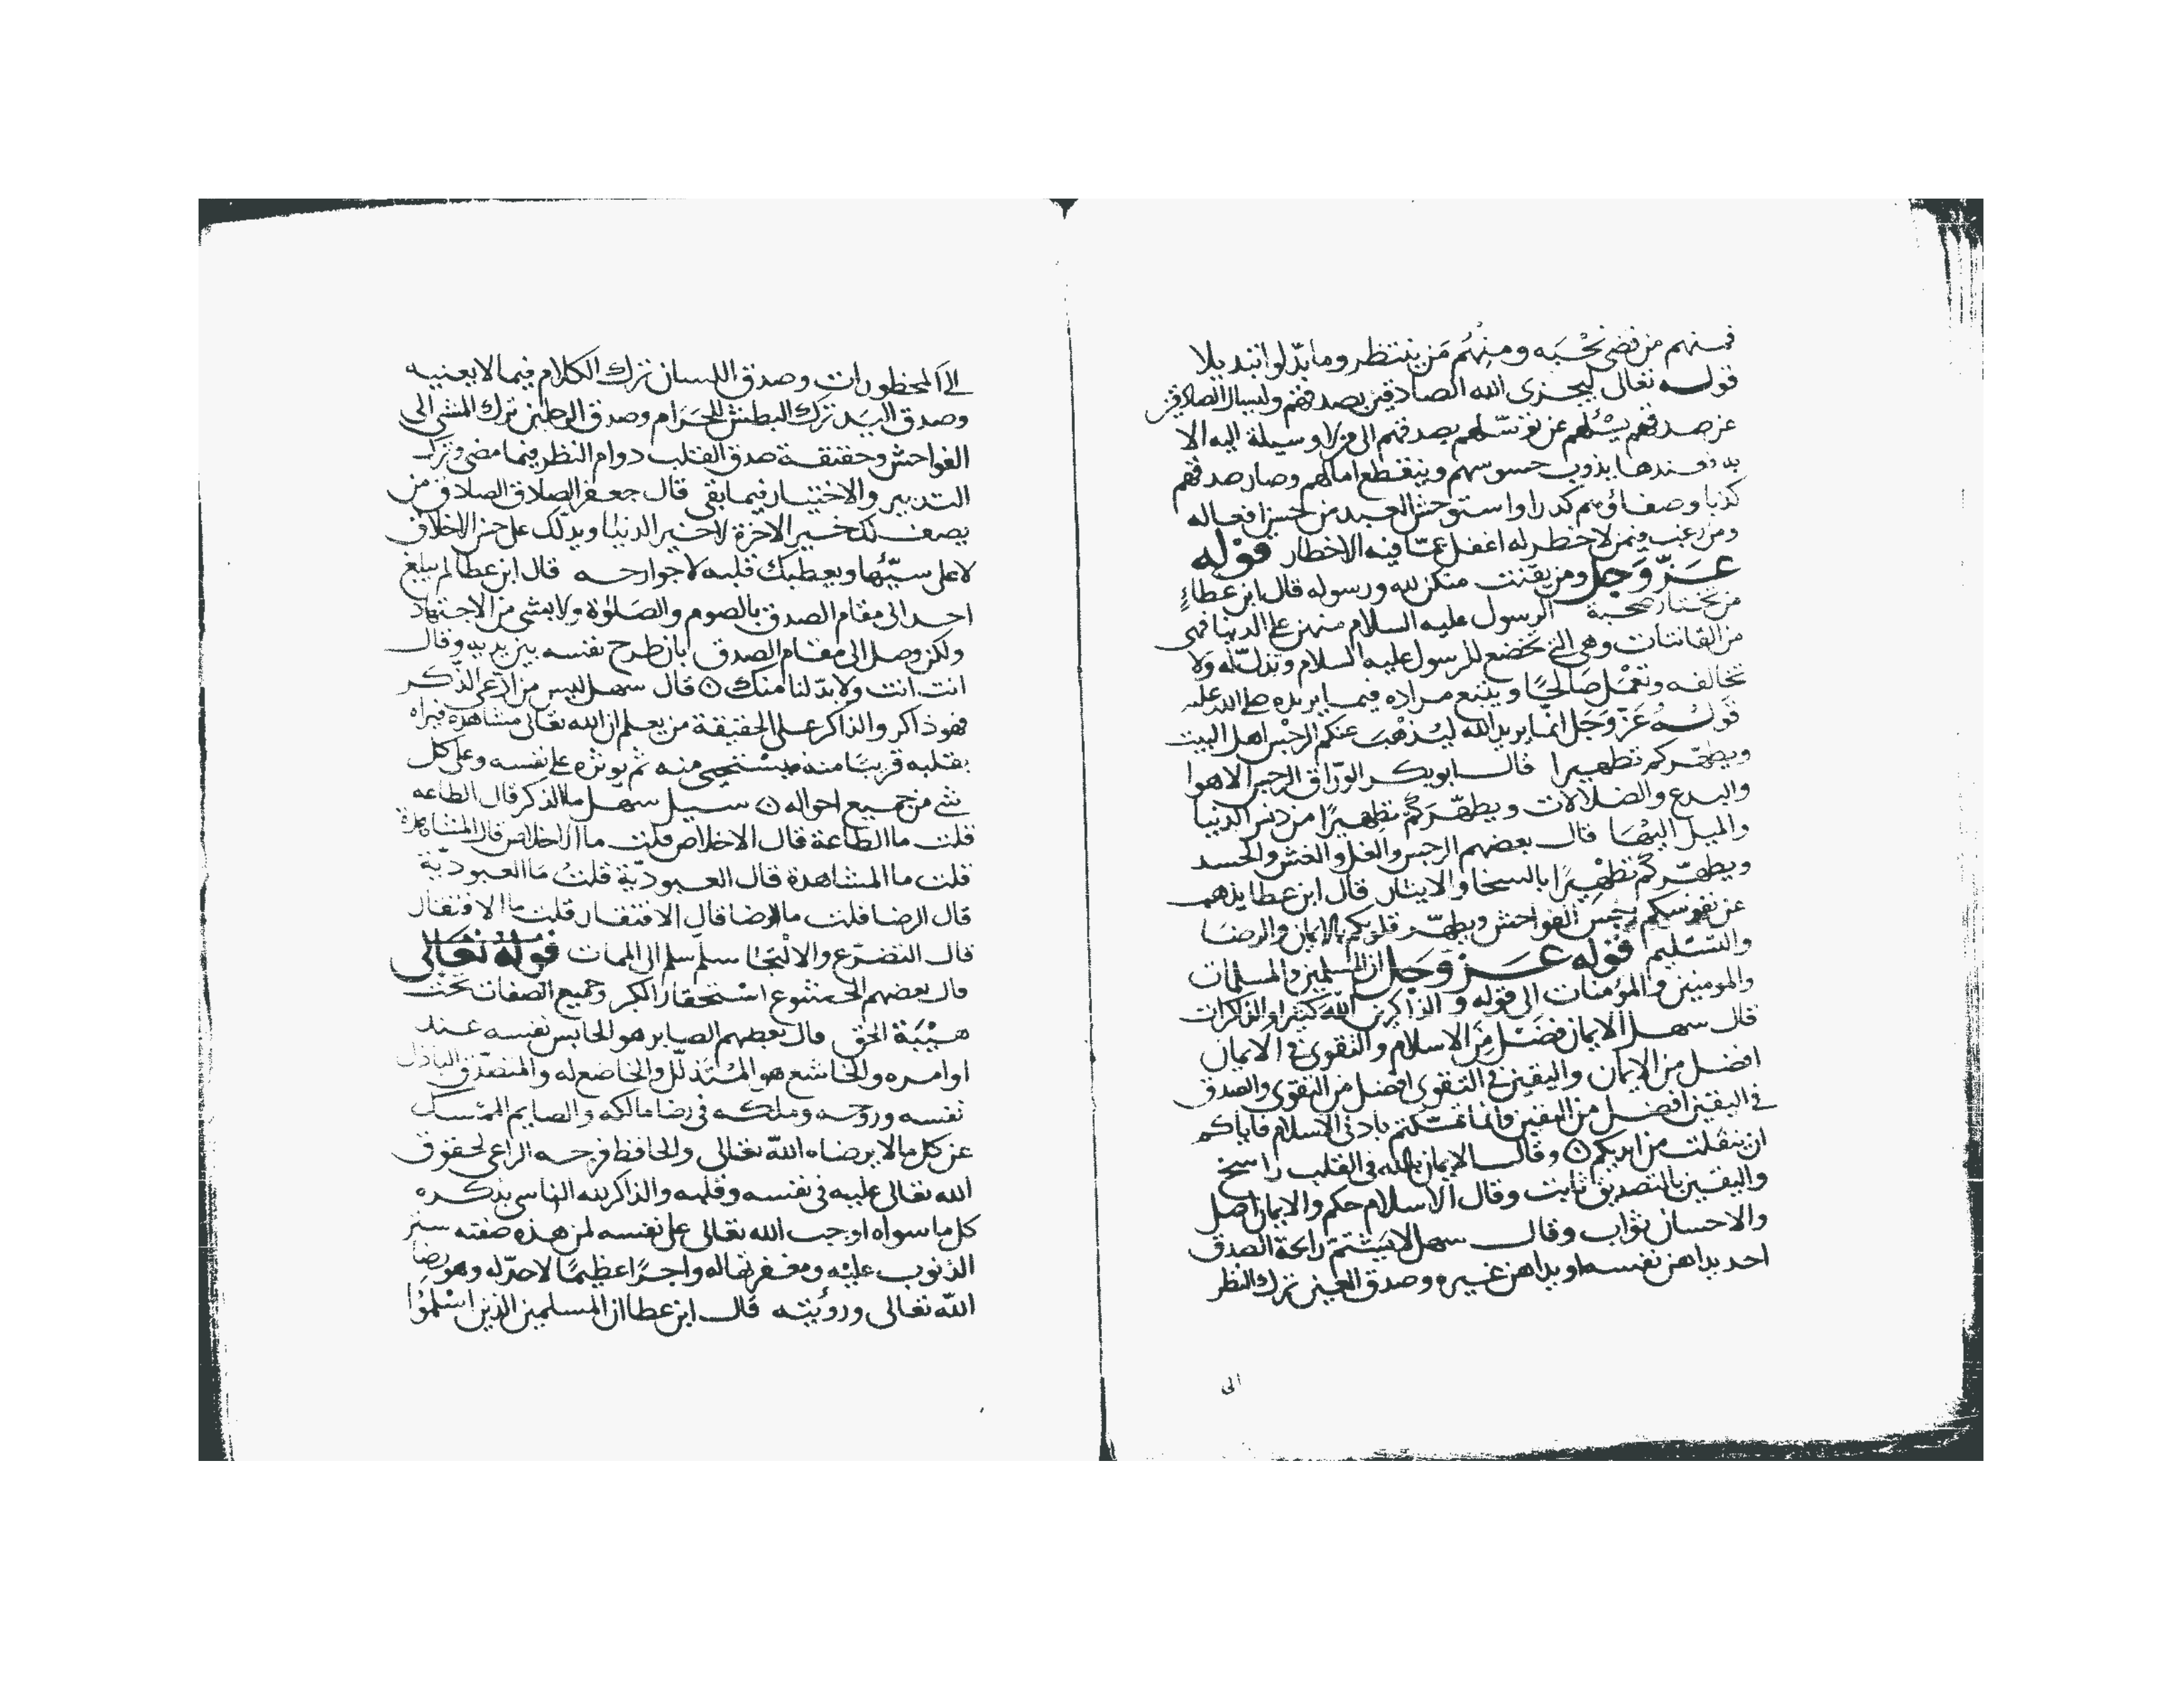 فمنهم من قضى نحبه ومنهم من ينتظر وما بدلوا تبديلا
قوله تعالى ليجزى الله الصادقين بصدقهم وليسال الصادقين
عن صدقهم يسئلهم عن توسلهم بصدقهم الى من لا وسيلة اليه الا
به فعندها يذوب حسوسهم وينقطع امالهم وصار صدقهم
كذبا وصفاؤهم كدرا واستوحش العبد من احسن افعاله
ومن رغب فيمن لا خطر له اغفل عما فيه الاخطار قوله
عز وجل ومن يقنت منكن لله ورسوله قال ابن عطاء
من يختار صحبة الرسول عليه السلام منهن على الدنيا فهى
من القانتات وهى التى تخضع للرسول عليه السلام وتذل له ولا
تخالفه وتعمل صالحا ويتبع مراده فيما يريده صلى الله عليه
قوله عز وجل انما يريد الله ليذهب عنكم الرجس اهل البيت
ويطهركم تطهيرا قال ابو بكر الوراق الرجس الاهوا
والبدع والضلالات ويطهركم تطهيرا من دنس الدنيا
والميل اليها قال بعضهم الرجس والغل والغش والحسد
ويطهركم تطهيرا بالسخا والايثار قال ابن عطا يذهب
عن نفوسكم رجس الفواحش ويطهر قلوبكم بالايمان والرضا
والتسليم قوله عز وجل ان المسلمين والمسلمات
والمومنين والمؤمنات الى قوله والذاكرين الله كثيرا والذاكرات
قال سهل الايمان فضل من الاسلام والتقوى فى الايمان
افضل من الايمان واليقين فى التقوى افضل من التقوى والصدق
فى اليقين افضل من اليقين وانما تمسكتم بادنى الاسلام فاياكم
ان ينفلت من ايديكم وقال الايمان بالله فى القلب راسخ
واليقين بالتصديق ثابت وقال الاسلام حكم والايمان اصل
والاحسان ثواب وقال سهل لا يشتم رائحة الصدق
احد يداهن نفسه او يداهن غيره وصدق العين ترك النظر
الى
الى المحظورات وصدق اللسان ترك الكلام فيما لا يعنيه
وصدق اليد ترك البطش للحرام وصدق الرجلين ترك المشى الى
الفواحش وحقيقة صدق القلب دوام النظر فيما مضى وترك
التدبير والاختيار فيما بقى قال جعفر الصادق الصادق من
يصف لك خير الاخرة لا خير الدنيا ويدلك على حسن الاخلاق
لا على سيئها ويعطيك قلبه لا جوارحه قال ابن عطا لم يبلغ
احد الى مقام الصدق بالصوم والصلوة ولا بشى من الاجتهاد
ولكن وصل الى مقام الصدق بان طرح نفسه بين يديه وقال
انت انت ولا بد لنا منك قال سهل ليس من ادعى الذكر
فهو ذاكر والذاكر على الحقيقة من يعلم ان الله تعالى مشاهده فيراه
بقلبه قريبا منه فيستحيى منه ثم يوثره على نفسه وعلى كل
شى من جميع احواله سيل سهل ما الذكر قال الطاعه
قلت ما الطاعة قال الاخلاص قلت ما الاخلاص قال المشاهدة
قلت ما المشاهدة قال العبودية قلت ما العبودية
قال الرضا قلت ما الرضا قال الافتقار قلت ما الافتقار
قال التضرع والالتجا سلم سلم الى الممات قوله تعالى
قال بعضهم الخشوع استحقار الكبر وجميع الصفات تحت
هيبة الحق قال بعضهم الصابر هو الحابس نفسه عند
اوامره والخاشع هو المتذلل والخاضع له والمتصدق الباذل
نفسه وروحه وملكه فى رضا مالكه والصايم الممسك
عن كل ما لا يرضاه الله تعالى والحافظ فرجه الراعى لحقوق
الله تعالى عليه فى نفسه وقلبه والذاكر لله الناسى بذكره
كل ما سواه اوجب الله تعالى على نفسه لمن هذه صفته ستر
الذنوب عليه ومغفرتها له واجرا عظيما لا حد له وهو رضا
الله تعالى ورؤيته قال ابن عطا ان المسلمين الذين اسلموا